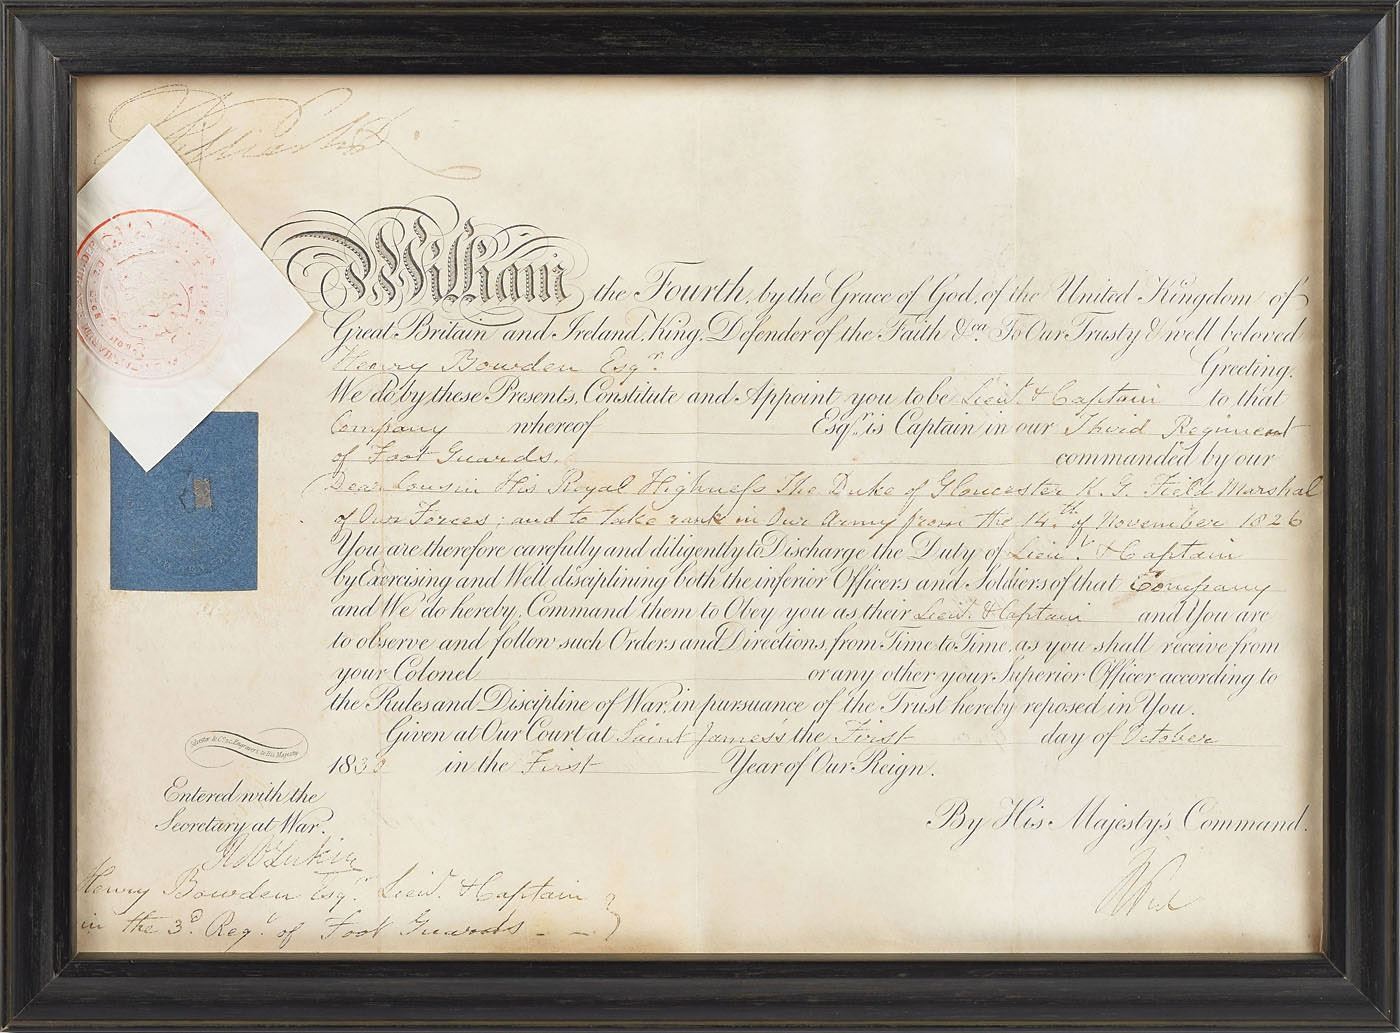 William the Fourth, by the Grace of God, of the United Kingdom of
Great Britain and Ireland, King, Defender of the Faith &ca. To Our Trusty & well beloved
Henry Bowden Esqr. Greeting.
We do by these Presents, Constitute and Appoint you to be Lieut. & Captain to that
Company whereof Esqr. is Captain in our Third Regiment
of Foot Guards, commanded by our
Dear Cousin His Royal Highness The Duke of Gloucester K.G. Field Marshal
of Our Forces; and to take rank in Our Army from the 14th of November 1826
You are therefore carefully and diligently to Discharge the Duty of Lieut. & Captain
by Exercising and Well disciplining both the inferior Officers and Soldiers of that Company
and We do hereby Command them to Obey you as their Lieut. & Captain and You are
to observe and follow such Orders and Directions, from Time to Time, as you shall receive from
your Colonel or any other your Superior Officer according to
the Rules and Discipline of War, in pursuance of the Trust hereby reposed in You.
Given at Our Court at Saint James's the First day of October
1830 in the First Year of Our Reign.
By His Majesty's Command.
Entered with the
Secretary at War.
Henry Bowden Esqr. Lieut. & Captain
in the 3d. Regt. of Foot Guards